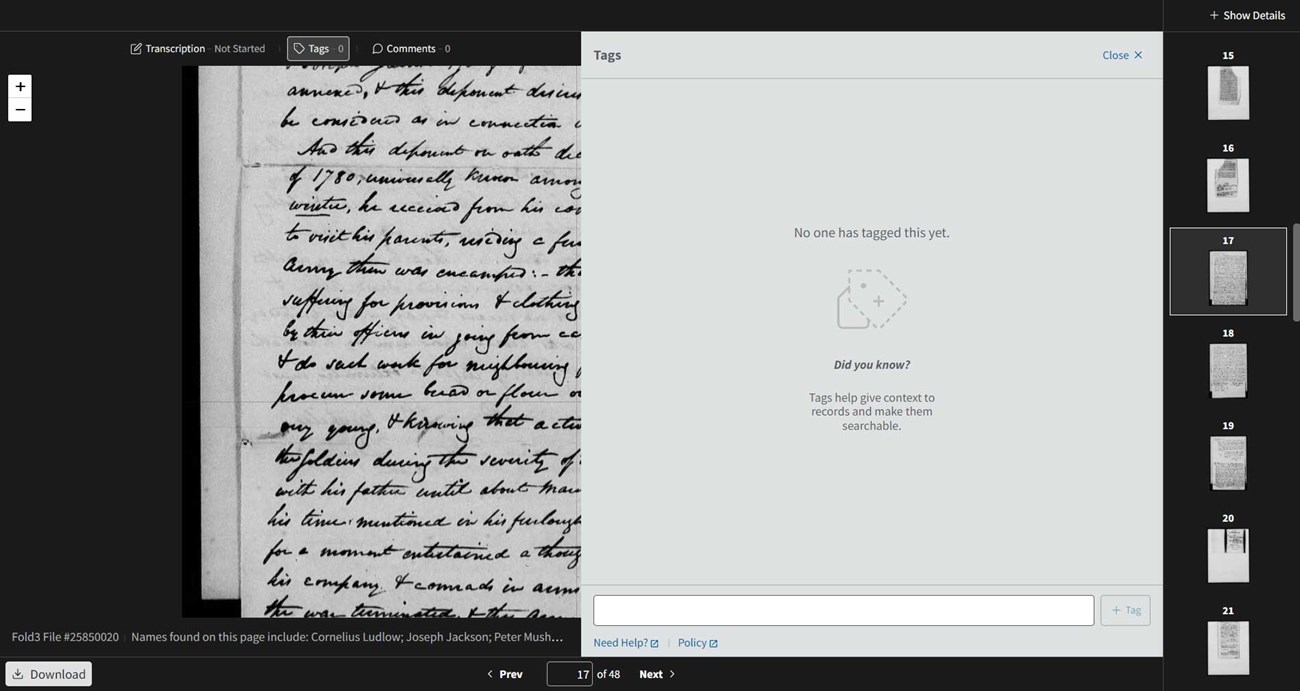 + Show Details
Transcription - Not Started
Tags - 0
Comments - 0
+
−
annexed, & this deponent
be considered as in connection
And this deponent on oath
of 1780, universally known among
winter, he received from his
to visit his parents, residing a few
Army then was encamped: - the
suffering for provisions & clothing
by their officers in going from
& do such work for neighbouring
procure some bread or flour or
very young, & knowing that
the soldiers during the severity of
with his father until about
his time mentioned in his furlough
for a moment entertained a
his company & comrads in arms
the war terminated, & this
Tags
Close ✕
No one has tagged this yet.
Did you know?
Tags help give context to
records and make them
searchable.
+ Tag
Need Help?
Policy
Fold3 File #25850020
Names found on this page include: Cornelius Ludlow; Joseph Jackson; Peter Mush...
Download
Prev
17 of 48
Next
15
16
17
18
19
20
21